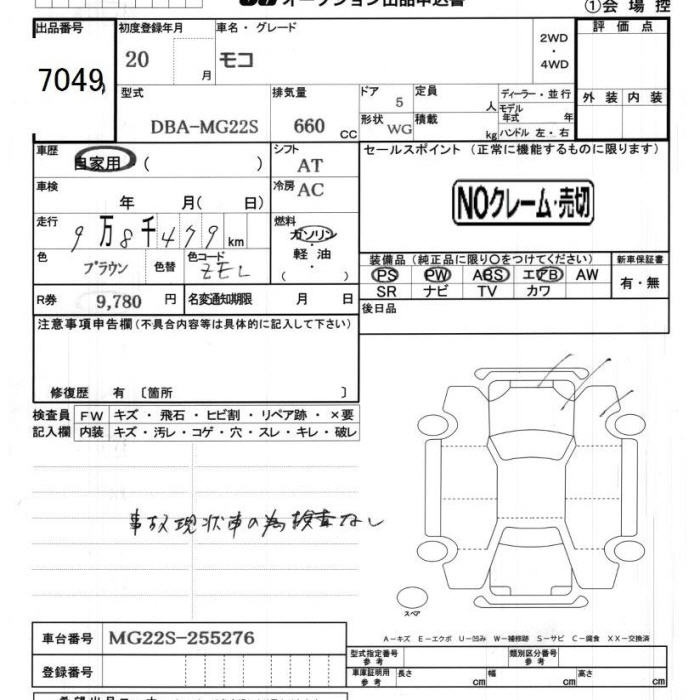 オークション出品申込書
①会場控
出品番号 初度登録年月 車名・グレード 2WD・4WD 評価点
7049 20 月 モコ
型式 排気量 ドア 定員 ディーラー・並行 外装 内装
DBA-MG22S 660 CC 5 人 モデル年式 年
形状 WG 積載 kg ハンドル 左・右
車歴 シフト セールスポイント（正常に機能するものに限ります）
自家用 （ ） AT
車検 冷房 AC
年 月（ 日） NOクレーム・売切
走行 燃料
9万8千479km ガソリン・軽油（ ）
色 色替 色コード 装備品（純正品に限り○をつけてください） 新車保証書
ブラウン ZEL PS PW ABS エアB AW 有・無
SR ナビ TV カワ
R券 9,780 円 名変通知期限 月 日 後日品
注意事項申告欄（不具合内容等は具体的に記入して下さい）
修復歴 有〔箇所 〕
検査員 FW キズ・飛石・ヒビ割・リペア跡・×要
記入欄 内装 キズ・汚レ・コゲ・穴・スレ・キレ・破レ
事故現状車の為検査なし
スペア
A－キズ E－エクボ U－凹み W－補修跡 S－サビ C－腐食 XX－交換済
車台番号 MG22S-255276
型式指定番号 参考 類別区分番号 参考
登録番号 車庫証明用 参考 長さ cm 幅 cm 高さ cm